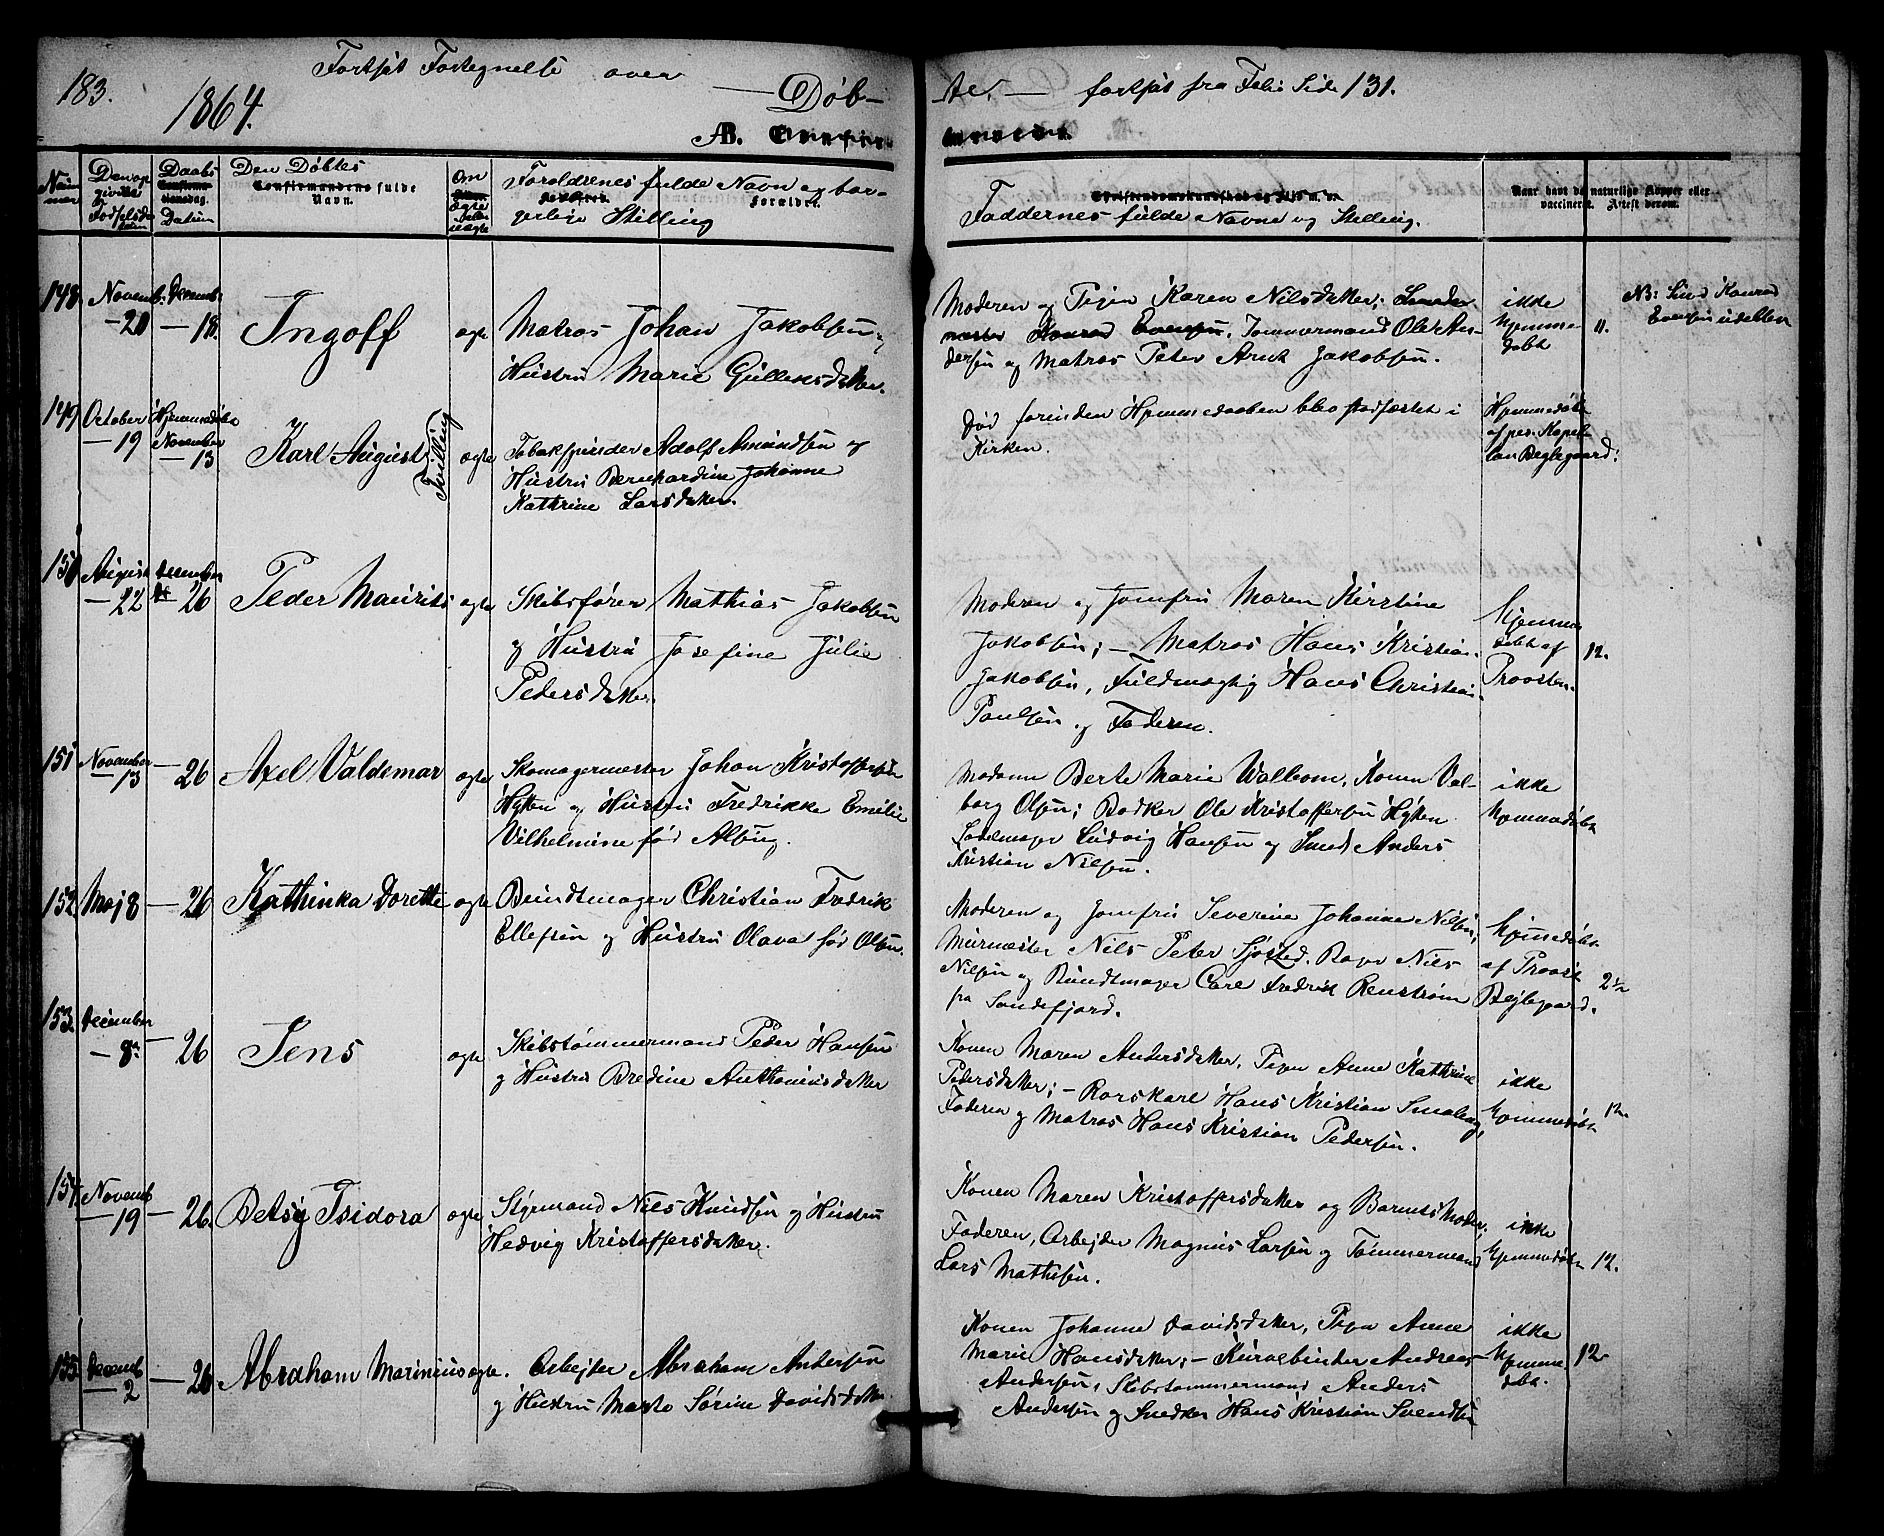 183.
Fortsat Fortegnelse over
1864.
— Døb-
te. — fortsat fra Folio Side 131.
B. Confir-
merede.
Num-
mer.
Den op-
givne
Fødselsda-
tum
Daabs
Confirma-
tionsdag.
Datum
Den Døbtes
Confirmandens fulde
Navn.
Om
ægte
eller
uægte
Forældrenes fulde Navn og bor-
gerlige Stilling
Forældre.
Christendomskundskab og Flid m. v.
Faddernes fulde Navne og Stilling.
Naar havt de naturlige Kopper eller
vaccineret. Attest derom.
148. Novemb. Decemb.
— 20 — 18.
Ingolf
ægte
Matros Johan Jakobsen
Hustru Marie Gullensdatter.
Moderen og Pigen Karen Nilsdatter; Smede-
mester Konrad Evensen, Tømmermand Ole An-
dersen og Matros Peter Arnt Jakobsen.
ikke
hjemme-
døbt
11.
NB: Smed Konrad
Evensen udebleven
149 October Hjemmedøbt
— 19 November
— 13
Karl August
Tvilling
ægte
Tobakspinder Adolf Amundsen og
Hustru Bernhardine Johanne
Kathrine Larsdatter.
Død forinden Hjemmedaaben blev stadfæstet i
Kirken.
Hjemmedøbt
af pers. Kapel-
lan Bejlegaard.
150 August December
— 22 26
Peder Maurits
ægte
Skibsfører Mathias Jakobsen
og Hustru Josefine Julie
Pedersdatter.
Moderen og Jomfru Maren Kirstine
Jakobsen; — Matros Hans Kristian
Jakobsen, Fuldmægtig Hans Christian
Paulsen og Faderen.
Hjemme
døbt af
Provsten.
12.
151 November — 26
— 13
Axel Valdemar
ægte
Skomagermester Johan Kristoffersen
Hytten og Hustru Fredrikke Emilie
Vilhelmine fød Albug.
Madame Berte Marie Walbom, Konen Val-
borg Olsen; Bødker Ole Kristoffersen Hytten
Sadelmager Ludvig Hansen og Smed Anders
Kristian Nilsen.
ikke
hjemmedøbt
152 Maj 8 — 26
Kathinka Dorette
ægte
Bundtmager Christian Fredrik
Ellefsen og Hustru Olava fød Olsen.
Moderen og Jomfru Severine Johanne Nilsen;
Murmester Nils Peter Sjøsted, Nils
Nilsen og Bundtmager Carl Fredrik Renstrøm
fra Sandefjord.
hjemmedøbt
af Provst
Bejlegaard.
2½
153. December
— 8de — 26
Jens
ægte
Skibstømmermand Peder Hansen
og Hustru Bredine Anthoniusdatter
Konen Maren Andersdatter, Pigen Anne Kathrine
Pedersdatter; — Rorskarl Hans Kristian Smaleng,
Faderen og Matros Hans Kristian Pedersen.
ikke
hjemmedøbt
12.
154. Novemb
— 19 — 26.
Betsy Isidora
ægte
Styrmand Nils Knudsen og Hustru
Hedvig Kristoffersdatter.
Konen Maren Kristoffersdatter og Barnets Moder;
Faderen, Arbejder Magnus Larsen og Tømmermand
Lars Mathisen.
ikke
hjemmedøbt
12.
155. Decemb
— 2 — 26
Abraham Marinius
ægte.
Arbejder Abraham Andersen
og Hustru Marte Sørine Davidsdatter
Konen Johanne Davidsdatter, Pigen Anne
Marie Hansdatter; — Kurvebinder Andreas
Andersen, Skibstømmermand Anders
Andersen og Snedker Hans Kristian Svendsen
ikke
hjemme-
døbt.
12